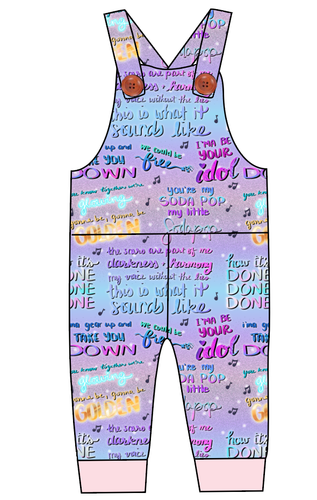 gonna be
GOLDEN
dapop
the scars are part of me
darkness + harmony
my voice without the lies
this is what it
sounds like
up and
TAKE YOU
DOWN
we could be
free
I'MA BE
YOUR
idol
you know together we're
glowing
gonna be, gonna be
GOLDEN
you're my
SODA POP
my little
sodapop
how it's
DONE
DONE
DONE
the scars are part of me
darkness + harmony
my voice without the lies
this is what it
sounds like
how it's
DONE
DONE
DONE
ima gear up and
TAKE YOU
DOWN
we could be
free
I'MA BE
YOUR
idol
ima
TA
DO
know together we're
glowing
gonna be, gonna be
GOLDEN
DA POP
little
dapop
the scars
darkness
my voice
of me
harmony
the lies
how it's
DONE
DONE